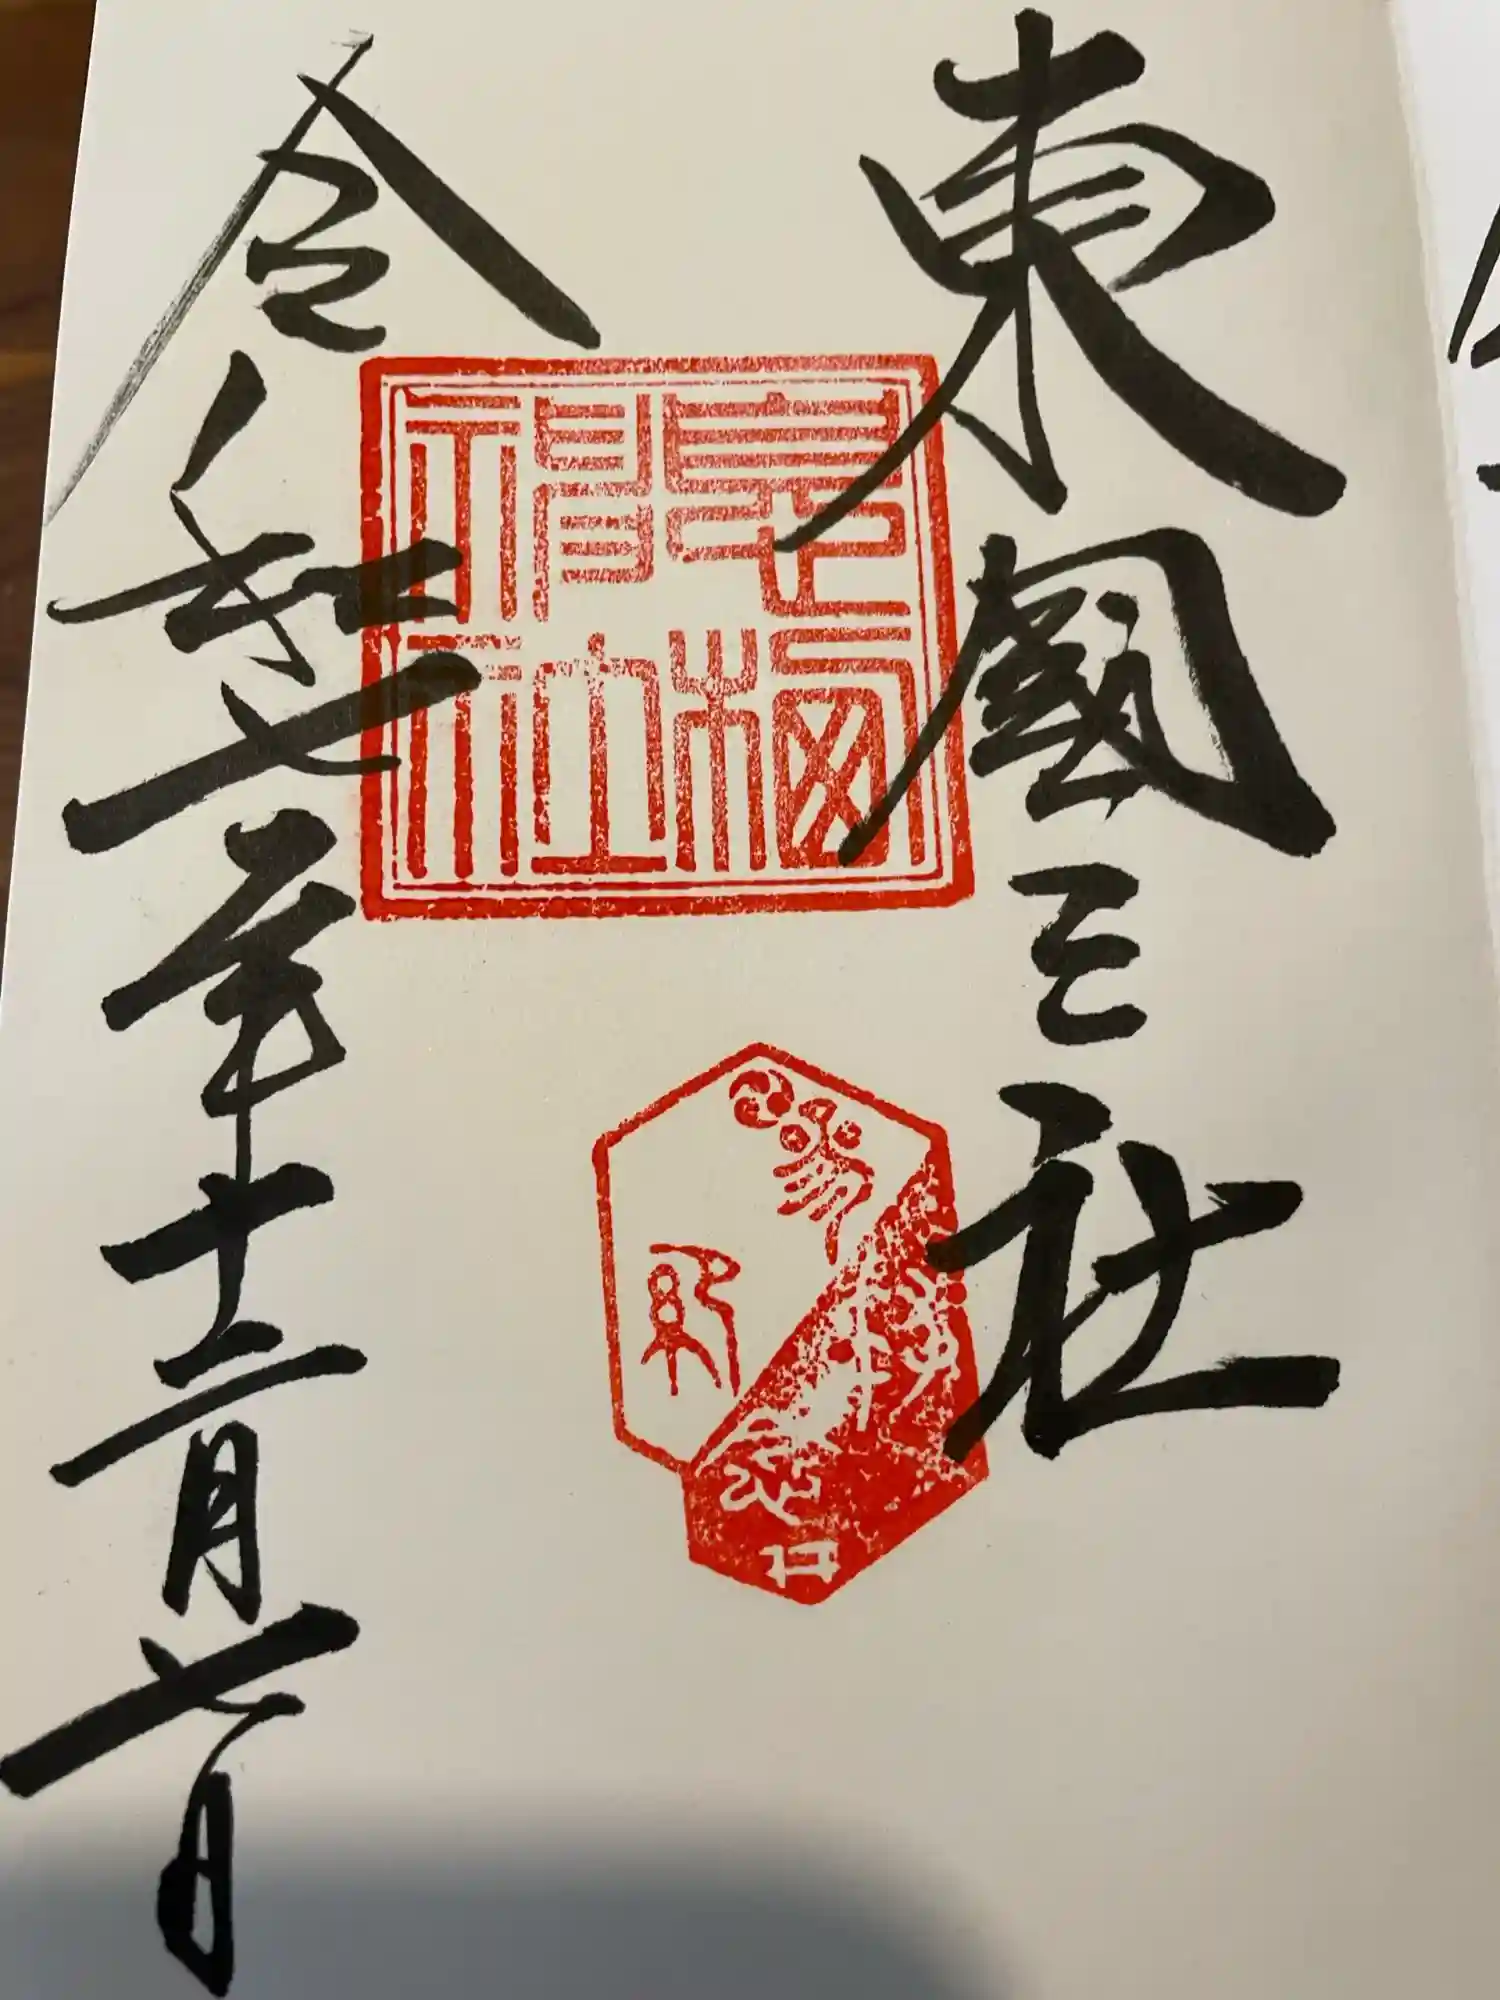 東國三社
息栖神社
令和七年十二月七日